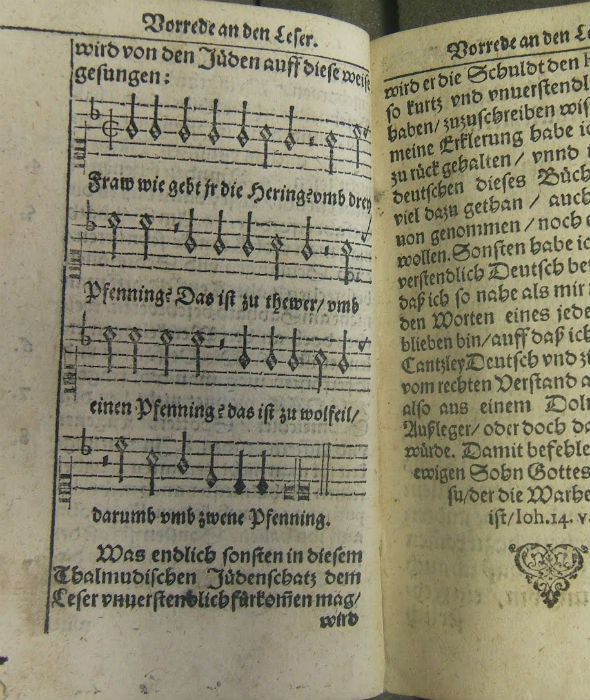 Vorrede an den Leser.
wird von den Jüden auff diese weise
gesungen:
Fraw wie gebt jr die Hering? vmb drey
Pfenning? Das ist zu thewer/ vmb
einen Pfenning? das ist zu wolfeil/
darumb vmb zwene Pfenning.
Was endlich sonsten in diesem
Thalmudischen Jüdenschatz dem
Leser vnuerstendlich fürkom̃en mag/
wird
Vorrede an den
wird er die Schuldt den
so kurtz vnd vnuerstendl
haben/ zuzuschreiben wis
meine Erklerung habe ic
zu rück gehalten/ vnnd
deutschen dieses Büch
viel dazu gethan/ auch
uon genommen/ noch
wollen. Sonsten habe ic
verstendlich Deutsch be
daß ich so nahe als mir
den Worten eines jede
blieben bin/ auff daß ich
Cantzley Deutsch vnd z
vom rechten Verstand a
also aus einem Dol
Außleger/ oder doch da
würde. Damit befehle
ewigen Sohn Gottes
su/ der die Warhe
ist/ Ioh. 14. v.